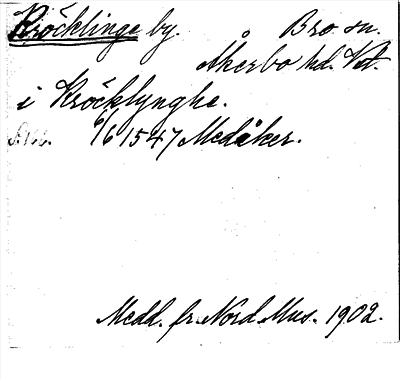 Kröcklinge by. Bro sn.
Åkerbo hd. Vst.
i Kröcklynghe.
6/6 1547 Medåker.
Medd. fr. Nord. Mus. 1902.